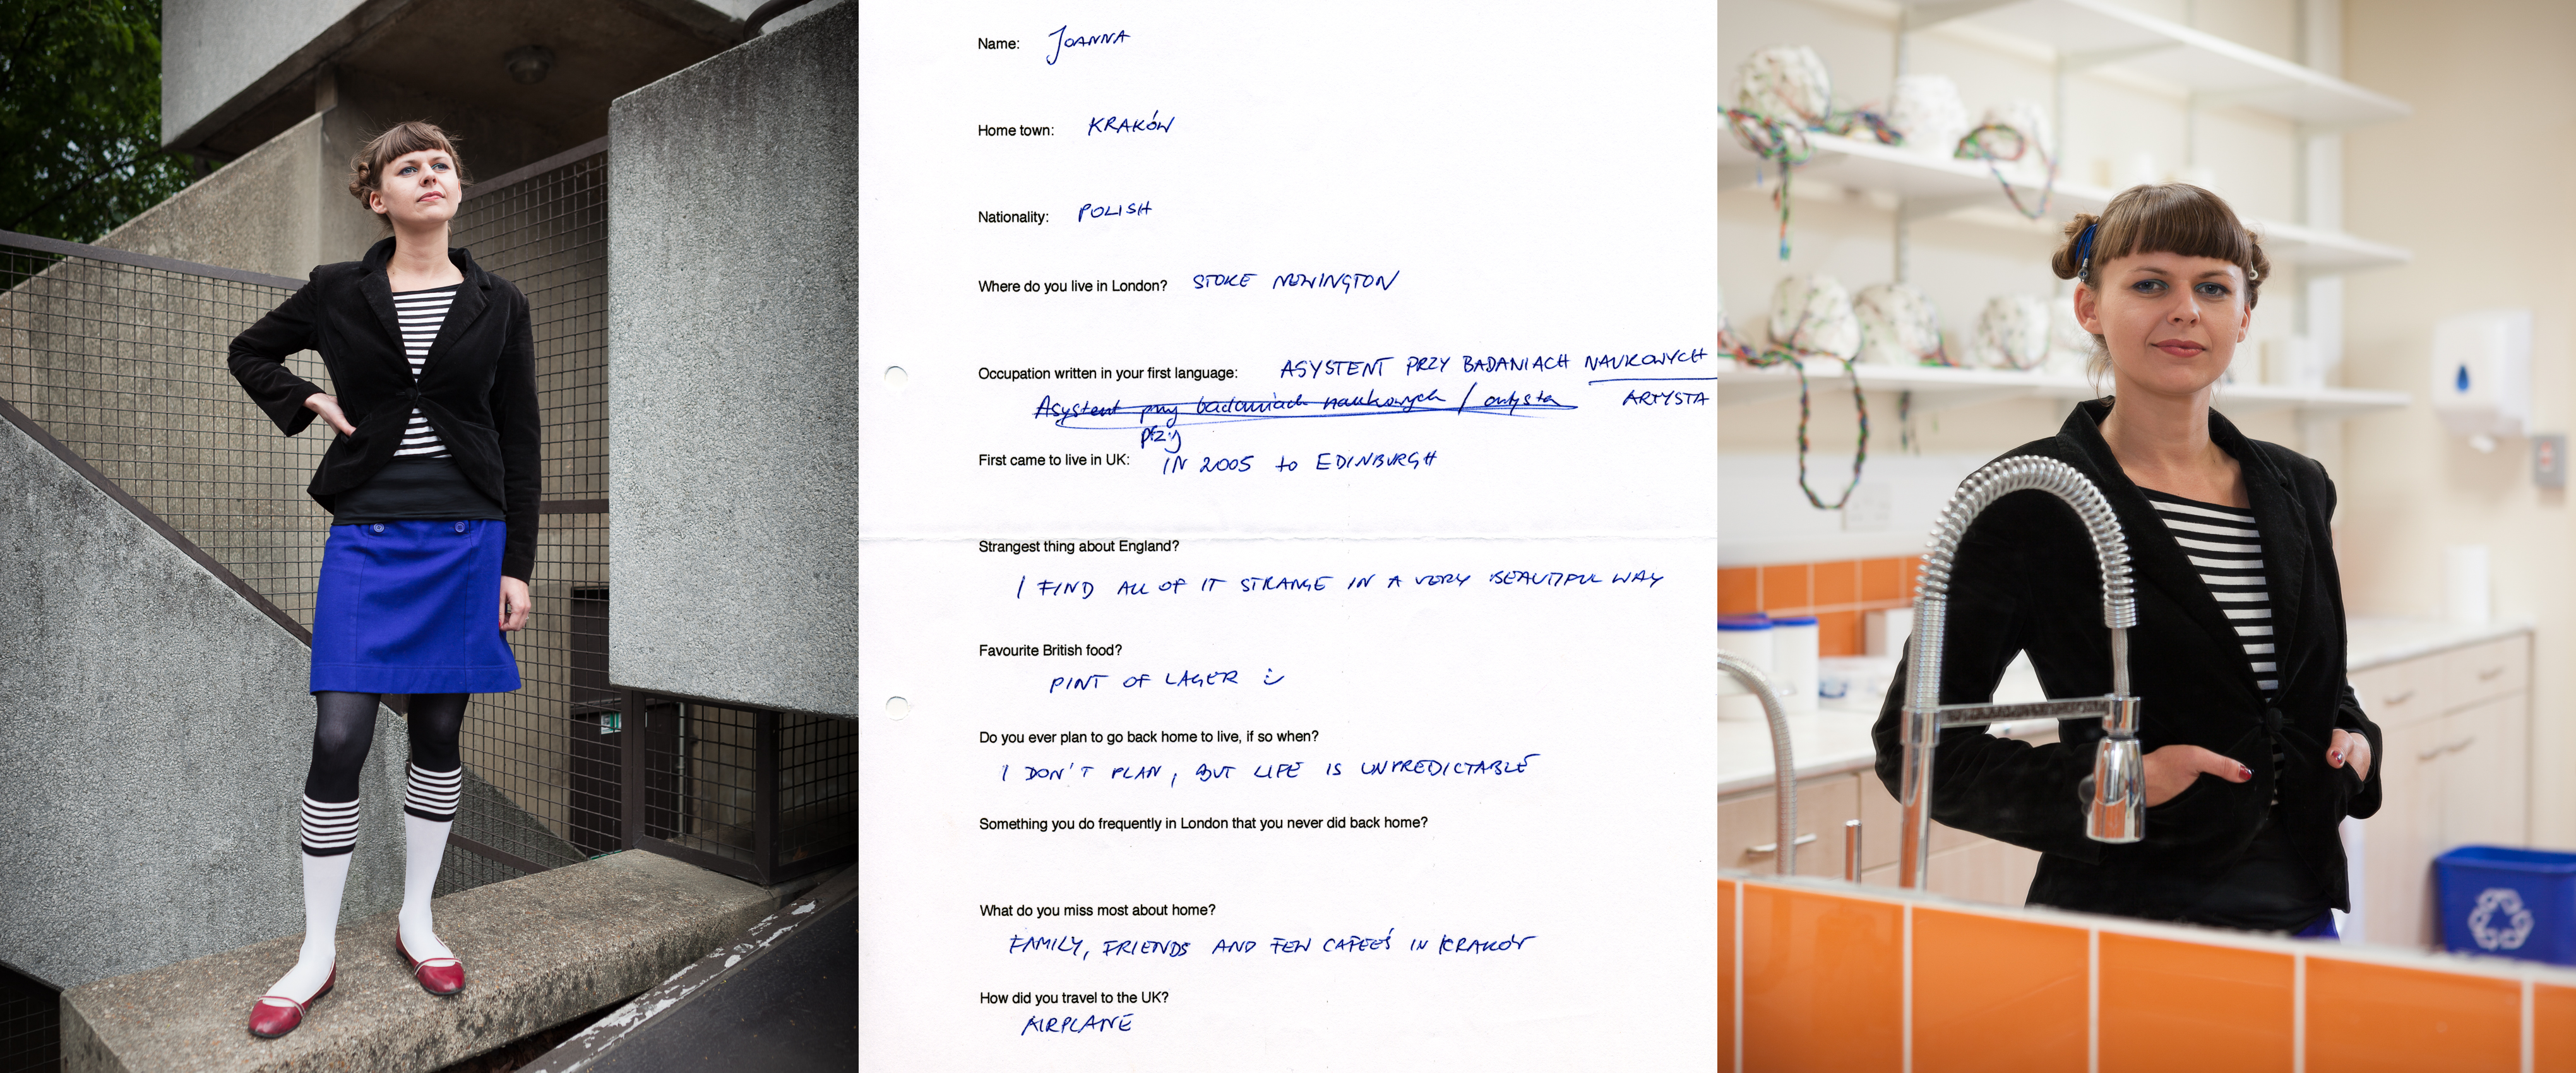 Name: JOANNA
Home town: KRAKÓW
Nationality: POLISH
Where do you live in London? STOKE NEWINGTON
Occupation written in your first language: ASYSTENT PRZY BADANIACH NAUKOWYCH
Asystent przy badaniach naukowych / artysta ARTYSTA
przy
First came to live in UK: IN 2005 to EDINBURGH
Strangest thing about England?
I FIND ALL OF IT STRANGE IN A VERY BEAUTIFUL WAY
Favourite British food?
PINT OF LAGER :)
Do you ever plan to go back home to live, if so when?
I DON'T PLAN, BUT LIFE IS UNPREDICTABLE
Something you do frequently in London that you never did back home?
What do you miss most about home?
FAMILY, FRIENDS AND FEW CAFEES IN KRAKÓW
How did you travel to the UK?
AIRPLANE